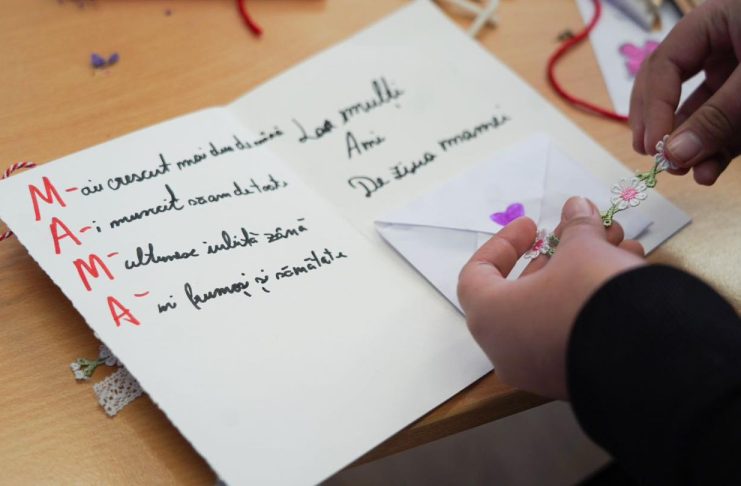 M-ai crescut mai dus de mână
A-i muncit și am de toate
M-ulțumesc iubită zână
A-ni frumoși și sănătate
La mulți
Ani
De ziua mamei